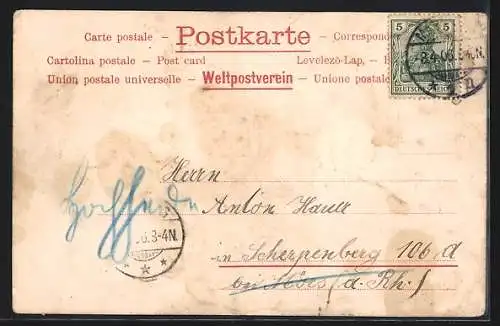 Carte postale – Postkarte – Correspond
Cartolina postale – Post card Levelező-Lap,
Union postale universelle – Weltpostverein – Unione postale
5 5
DEUTSCHES REICH
8-4N.
Herrn
Anton Hauer
in Scherpenberg 106 d
bei Mörs (a. Rh.)